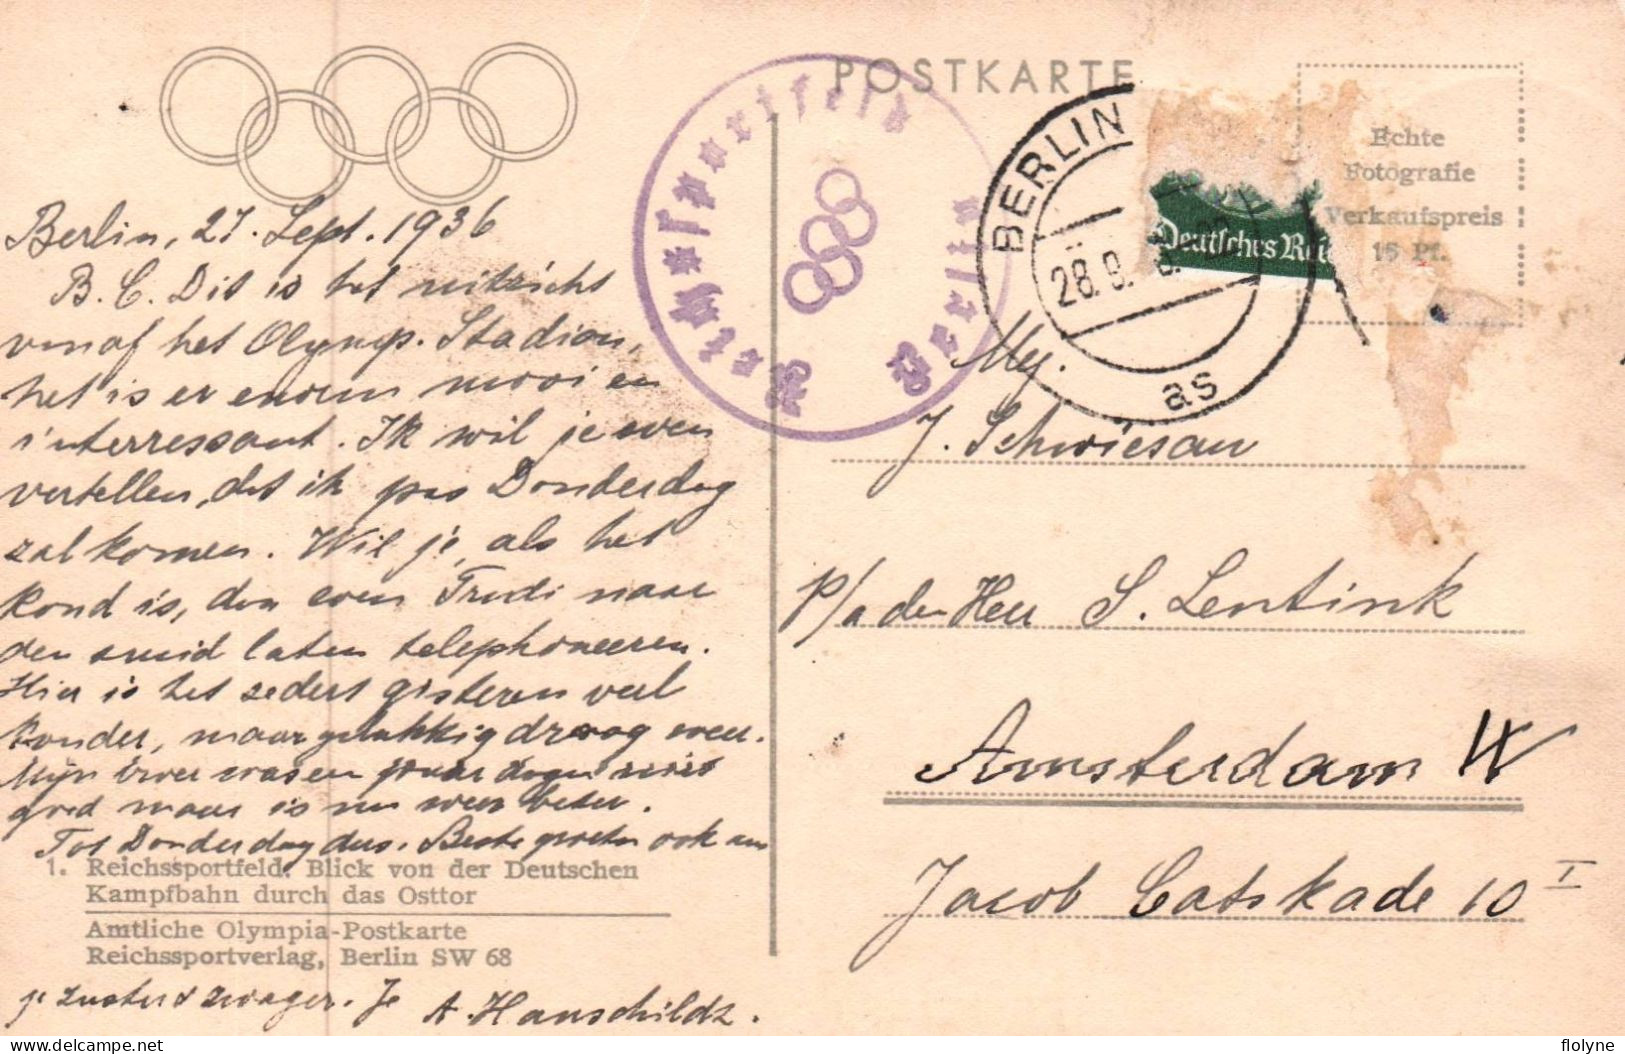 POSTKARTE
Echte
Fotografie
Verkaufspreis
15 Pf.
Deutsches Rei
BERLIN
28. 9.
as
Reichssportfeld
Berlin
Berlin, 27. Sept. 1936
B. C. Dit is het uitzicht
vanaf het Olymp. Stadion,
het is er enorm mooi en
interressant. Ik wil je even
vertellen, dat ik pas Donderdag
zal komen. Wil je, als het
kond is, dan even Trudi naar
den smid laten telephoneeren.
Hier is het sedert gisteren veel
kouder, maar gelukkig droog weer.
Mijn paar dagen niet
goed maar is nu weer beter.
Tot Donderdag dus. Beste groeten ook aan
1. Reichssportfeld. Blick von der Deutschen
Kampfbahn durch das Osttor
Amtliche Olympia-Postkarte
Reichssportverlag, Berlin SW 68
je zuster & zwager. Je A. Hanschildz.
Mej.
J. Schwiesau
p/a den Heer S. Lentink
Amsterdam W
Jacob Catskade 10 I
flolyne